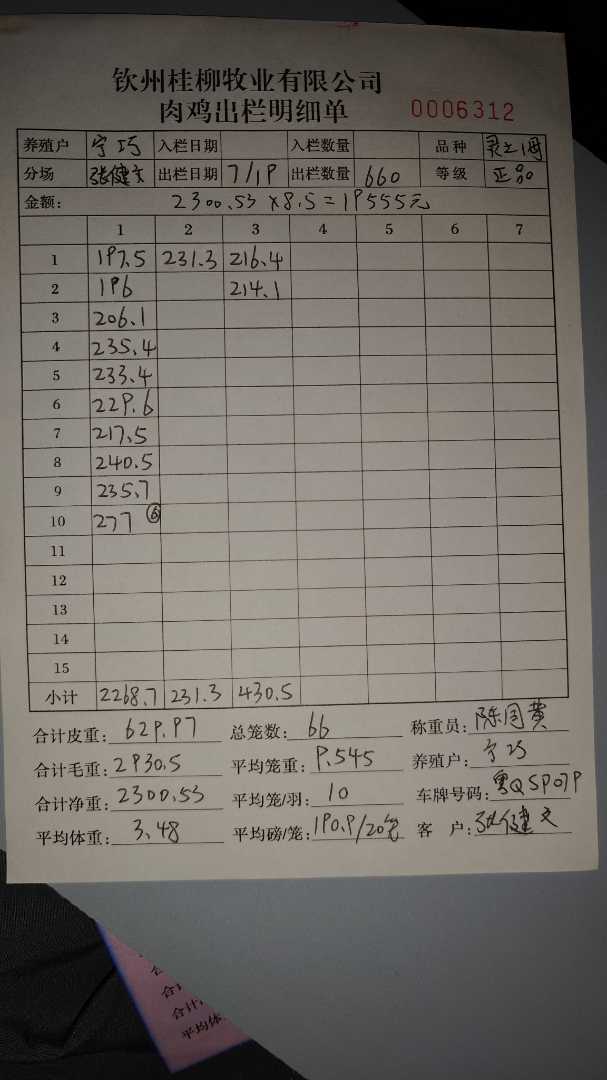 钦州桂柳牧业有限公司
肉鸡出栏明细单 0006312
养殖户 宁巧 入栏日期 入栏数量 品种
分场 张健文 出栏日期 7/19 出栏数量 660 等级 正品
金额: 2300.53×8.5=19555元
1 2 3 4 5 6 7
1 197.5 231.3 216.4
2 196 214.1
3 206.1
4 235.4
5 233.4
6 229.6
7 217.5
8 240.5
9 235.7
10 277 ⑥
11
12
13
14
15
小计 2268.7 231.3 430.5
合计皮重: 629.97 总笼数: 66 称重员:
合计毛重: 2930.5 平均笼重: 9.545 养殖户: 宁巧
合计净重: 2300.53 平均笼/羽: 10 车牌号码: 粤QSP079
平均体重: 3.48 平均磅/笼: 190.9/20笼 客 户: 张健文
合计
合计
平均体